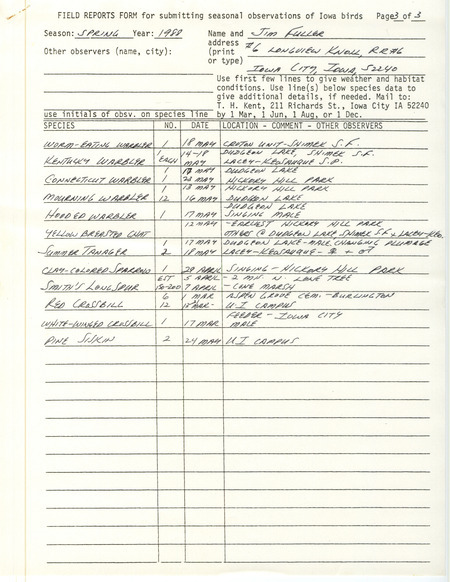 FIELD REPORTS FORM for submitting seasonal observations of Iowa birds Page 3 of 3
Season: SPRING Year: 1988 Name and JIM FULLER
address #6 LONGVIEW KNOLL, RR#6
Other observers (name, city): (print
or type) IOWA CITY, IOWA, 52240
Use first few lines to give weather and habitat
conditions. Use line(s) below species data to
give additional details, if needed. Mail to:
T. H. Kent, 211 Richards St., Iowa City IA 52240
use initials of obsv. on species line by 1 Mar, 1 Jun, 1 Aug, or 1 Dec.
SPECIES NO. DATE LOCATION - COMMENT - OTHER OBSERVERS
WORM-EATING WARBLER 1 18 MAY CROTON UNIT-SHIMEK S.F.
14-18 DUDGEON LAKE, SHIMEK S.F.
KENTUCKY WARBLER EACH MAY LACEY-KEOSAUQUA S.P.
1 MAY DUDGEON LAKE
CONNECTICUT WARBLER 1 MAY HICKORY HILL PARK
1 13 MAY HICKORY HILL PARK
MOURNING WARBLER 12 16 MAY DUDGEON LAKE
DUDGEON LAKE
HOODED WARBLER 1 17 MAY SINGING MALE
12 MAY -EARLIEST HICKORY HILL PARK
YELLOW BREASTED CHAT OTHERS @ DUDGEON LAKE, SHIMEK S.F. & LACEY-KEO.
1 17 MAY DUDGEON LAKE-MALE CHANGING PLUMAGE
SUMMER TANAGER 2 18 MAY LACEY-KEOSAUQUA- ♀ + ♂
CLAY-COLORED SPARROW 1 29 APRIL SINGING - HICKORY HILL PARK
EST 5 APRIL - 2 MI. N. LONE TREE
SMITH'S LONGSPUR 150-200 7 APRIL - CONE MARSH
6 1 MAR ASPEN GROVE CEM.-BURLINGTON
RED CROSSBILL 12 MAR- U.I. CAMPUS
FEEDER - IOWA CITY
WHITE-WINGED CROSSBILL 1 17 MAR MALE
PINE SISKIN 2 24 MAY U.I. CAMPUS